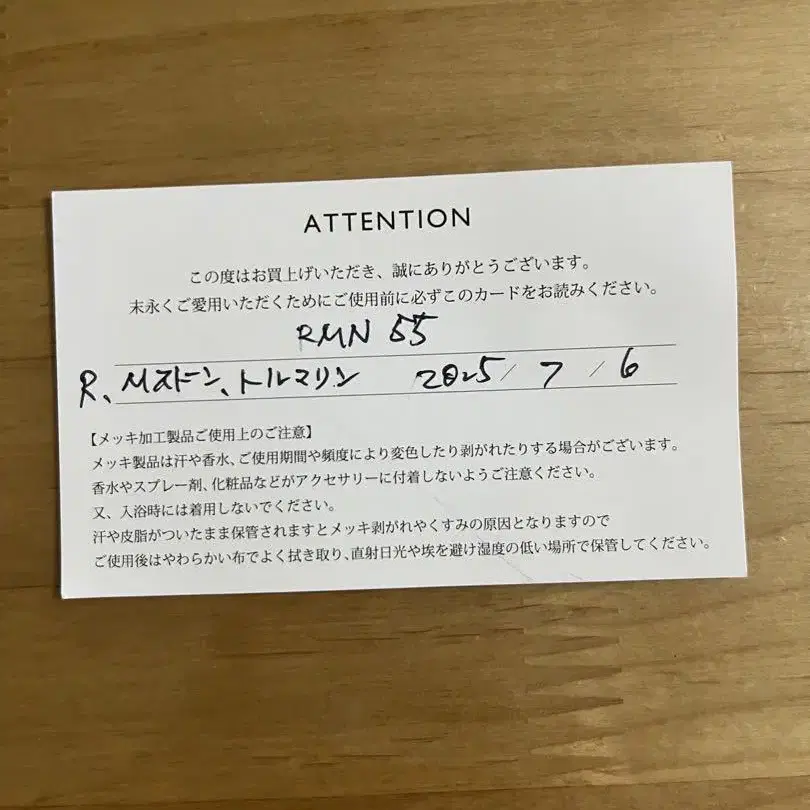 ATTENTION
この度はお買上げいただき、誠にありがとうございます。
末永くご愛用いただくためにご使用前に必ずこのカードをお読みください。
RMN 55
R、Mストーン、トルマリン 2025/7/6
【メッキ加工製品ご使用上のご注意】
メッキ製品は汗や香水、ご使用期間や頻度により変色したり剥がれたりする場合がございます。
香水やスプレー剤、化粧品などがアクセサリーに付着しないようご注意ください。
又、入浴時には着用しないでください。
汗や皮脂がついたまま保管されますとメッキ剥がれやくすみの原因となりますので
ご使用後はやわらかい布でよく拭き取り、直射日光や埃を避け湿度の低い場所で保管してください。